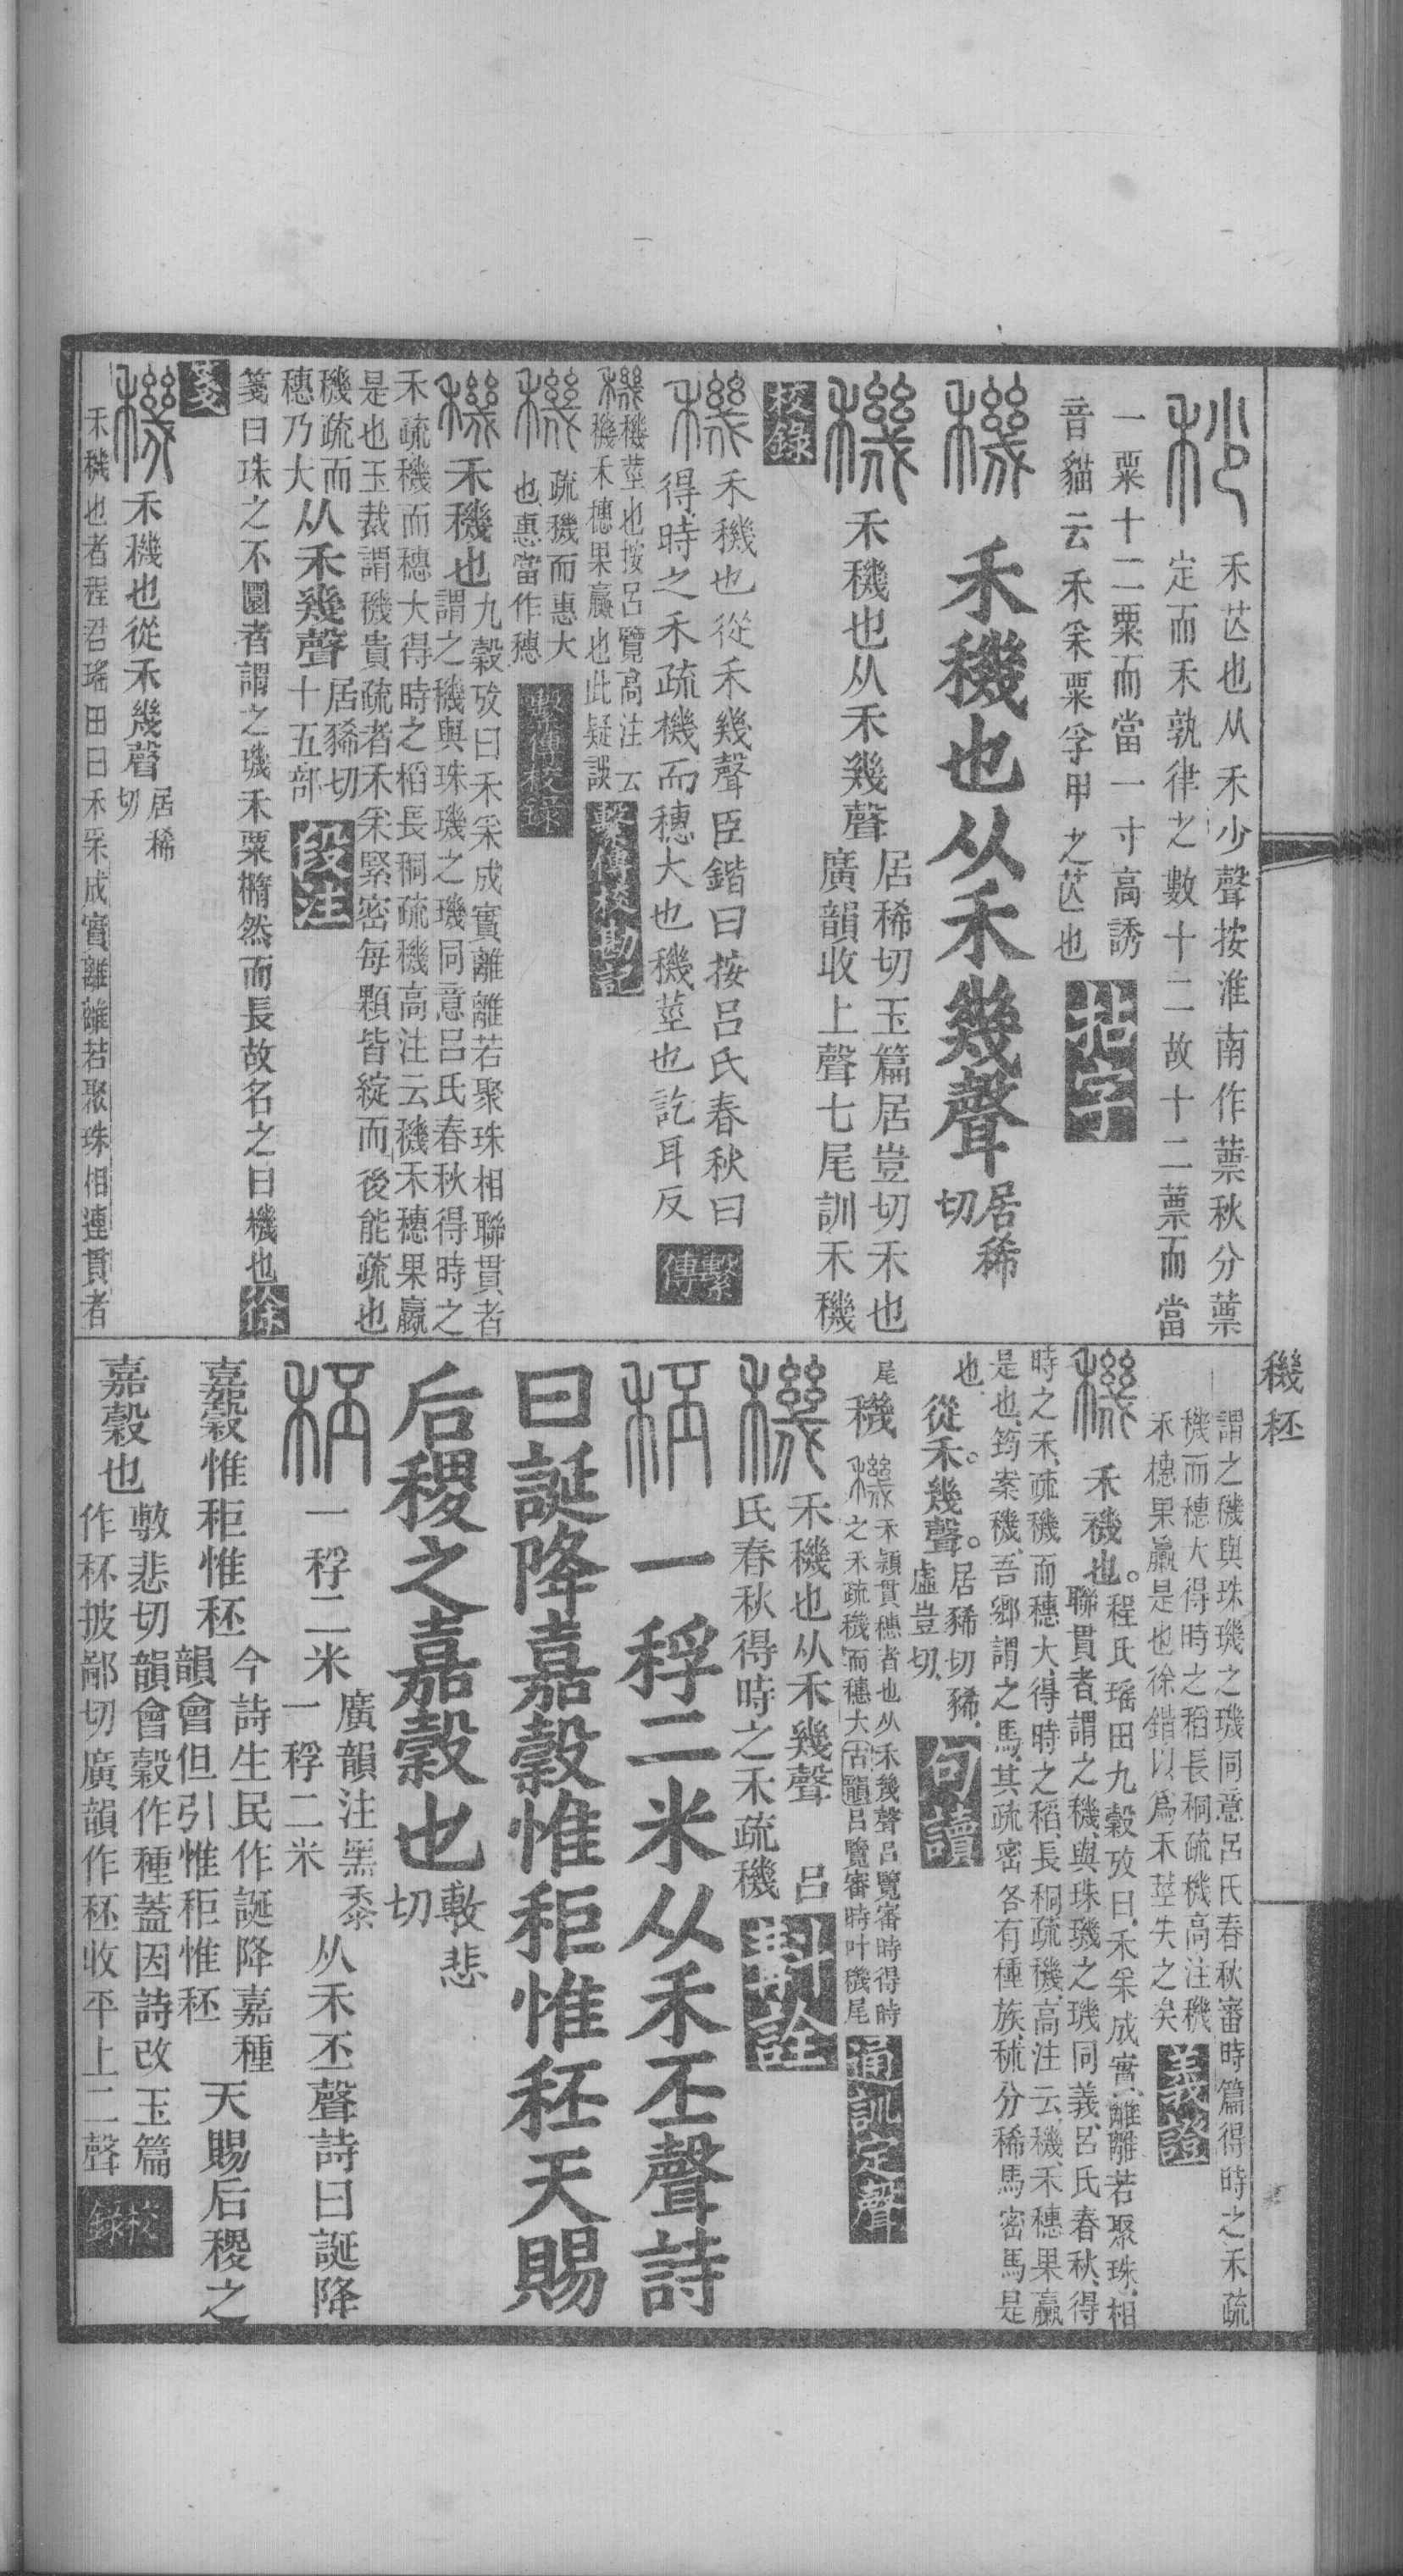 禾芒也从禾少聲按淮南作蔈秋分蔈
定而禾孰律之數十二故十二蔈而當
一粟十二粟而當一寸高誘
音貓云禾采粟孚甲之芒也
禾機也从禾幾聲
居稀
切
禾機也从禾幾聲
居稀切玉篇居豈切禾也
廣韻收上聲七尾訓禾機
校錄
禾機也從禾幾聲臣鍇曰按呂氏春秋曰
得時之禾疏機而穗大也機莖也訖耳反
繫傳
機莖也按呂覽高注云
機禾穗果羸也此疑誤
繫傳校勘記
疏機而惠大
也惠當作穗
繫傳校錄
禾機也
九穀攷曰禾采成實離離若聚珠相聯貫者
謂之機與珠璣之璣同意呂氏春秋得時之
禾疏機而穗大得時之稻長稠疏機高注云機禾穗果羸
是也玉裁謂機貴疏者禾采緊密每顆皆綻而後能疏也
機疏而
穗乃大
从禾幾聲
居豨切
十五部
段注
箋曰珠之不圜者謂之璣禾粟橢然而長故名之曰機也
徐箋
禾機也從禾幾聲
居稀
切
禾機也者程君瑤田曰禾采成實離離若聚珠相連貫者
機秠
謂之機與珠璣之璣同意呂氏春秋審時篇得時之禾疏
機而穗大得時之稻長稠疏機高注機
禾穗果羸是也徐鍇以爲禾莖失之矣
義證
禾機也。
程氏瑤田九穀攷曰禾采成實離離若聚珠相
聯貫者謂之機與珠璣之璣同義呂氏春秋得
時之禾疏機而穗大得時之稻長稠疏機高注云機禾穗果羸
是也筠案機吾鄉謂之馬其疏密各有種族秫分稀馬密馬是
也
從禾。幾聲。
居豨切豨
虛豈切
句讀
尾
機
禾穎貫穗者也从禾幾聲呂覽審時得時
之禾疏機而穗大古韻呂覽審時叶機尾
通訓定聲
禾機也从禾幾聲 呂
氏春秋得時之禾疏機
斠詮
一稃二米从禾丕聲詩
曰誕降嘉穀惟秬惟秠天賜
后稷之嘉穀也
敷悲
切
一稃二米
廣韻注黑黍
一稃二米
从禾丕聲詩曰誕降
嘉穀惟秬惟秠
今詩生民作誕降嘉種
韻會但引惟秬惟秠
天賜后稷之
嘉穀也
敷悲切韻會穀作種蓋因詩改玉篇
作秠披鄙切廣韻作秠收平上二聲
校錄